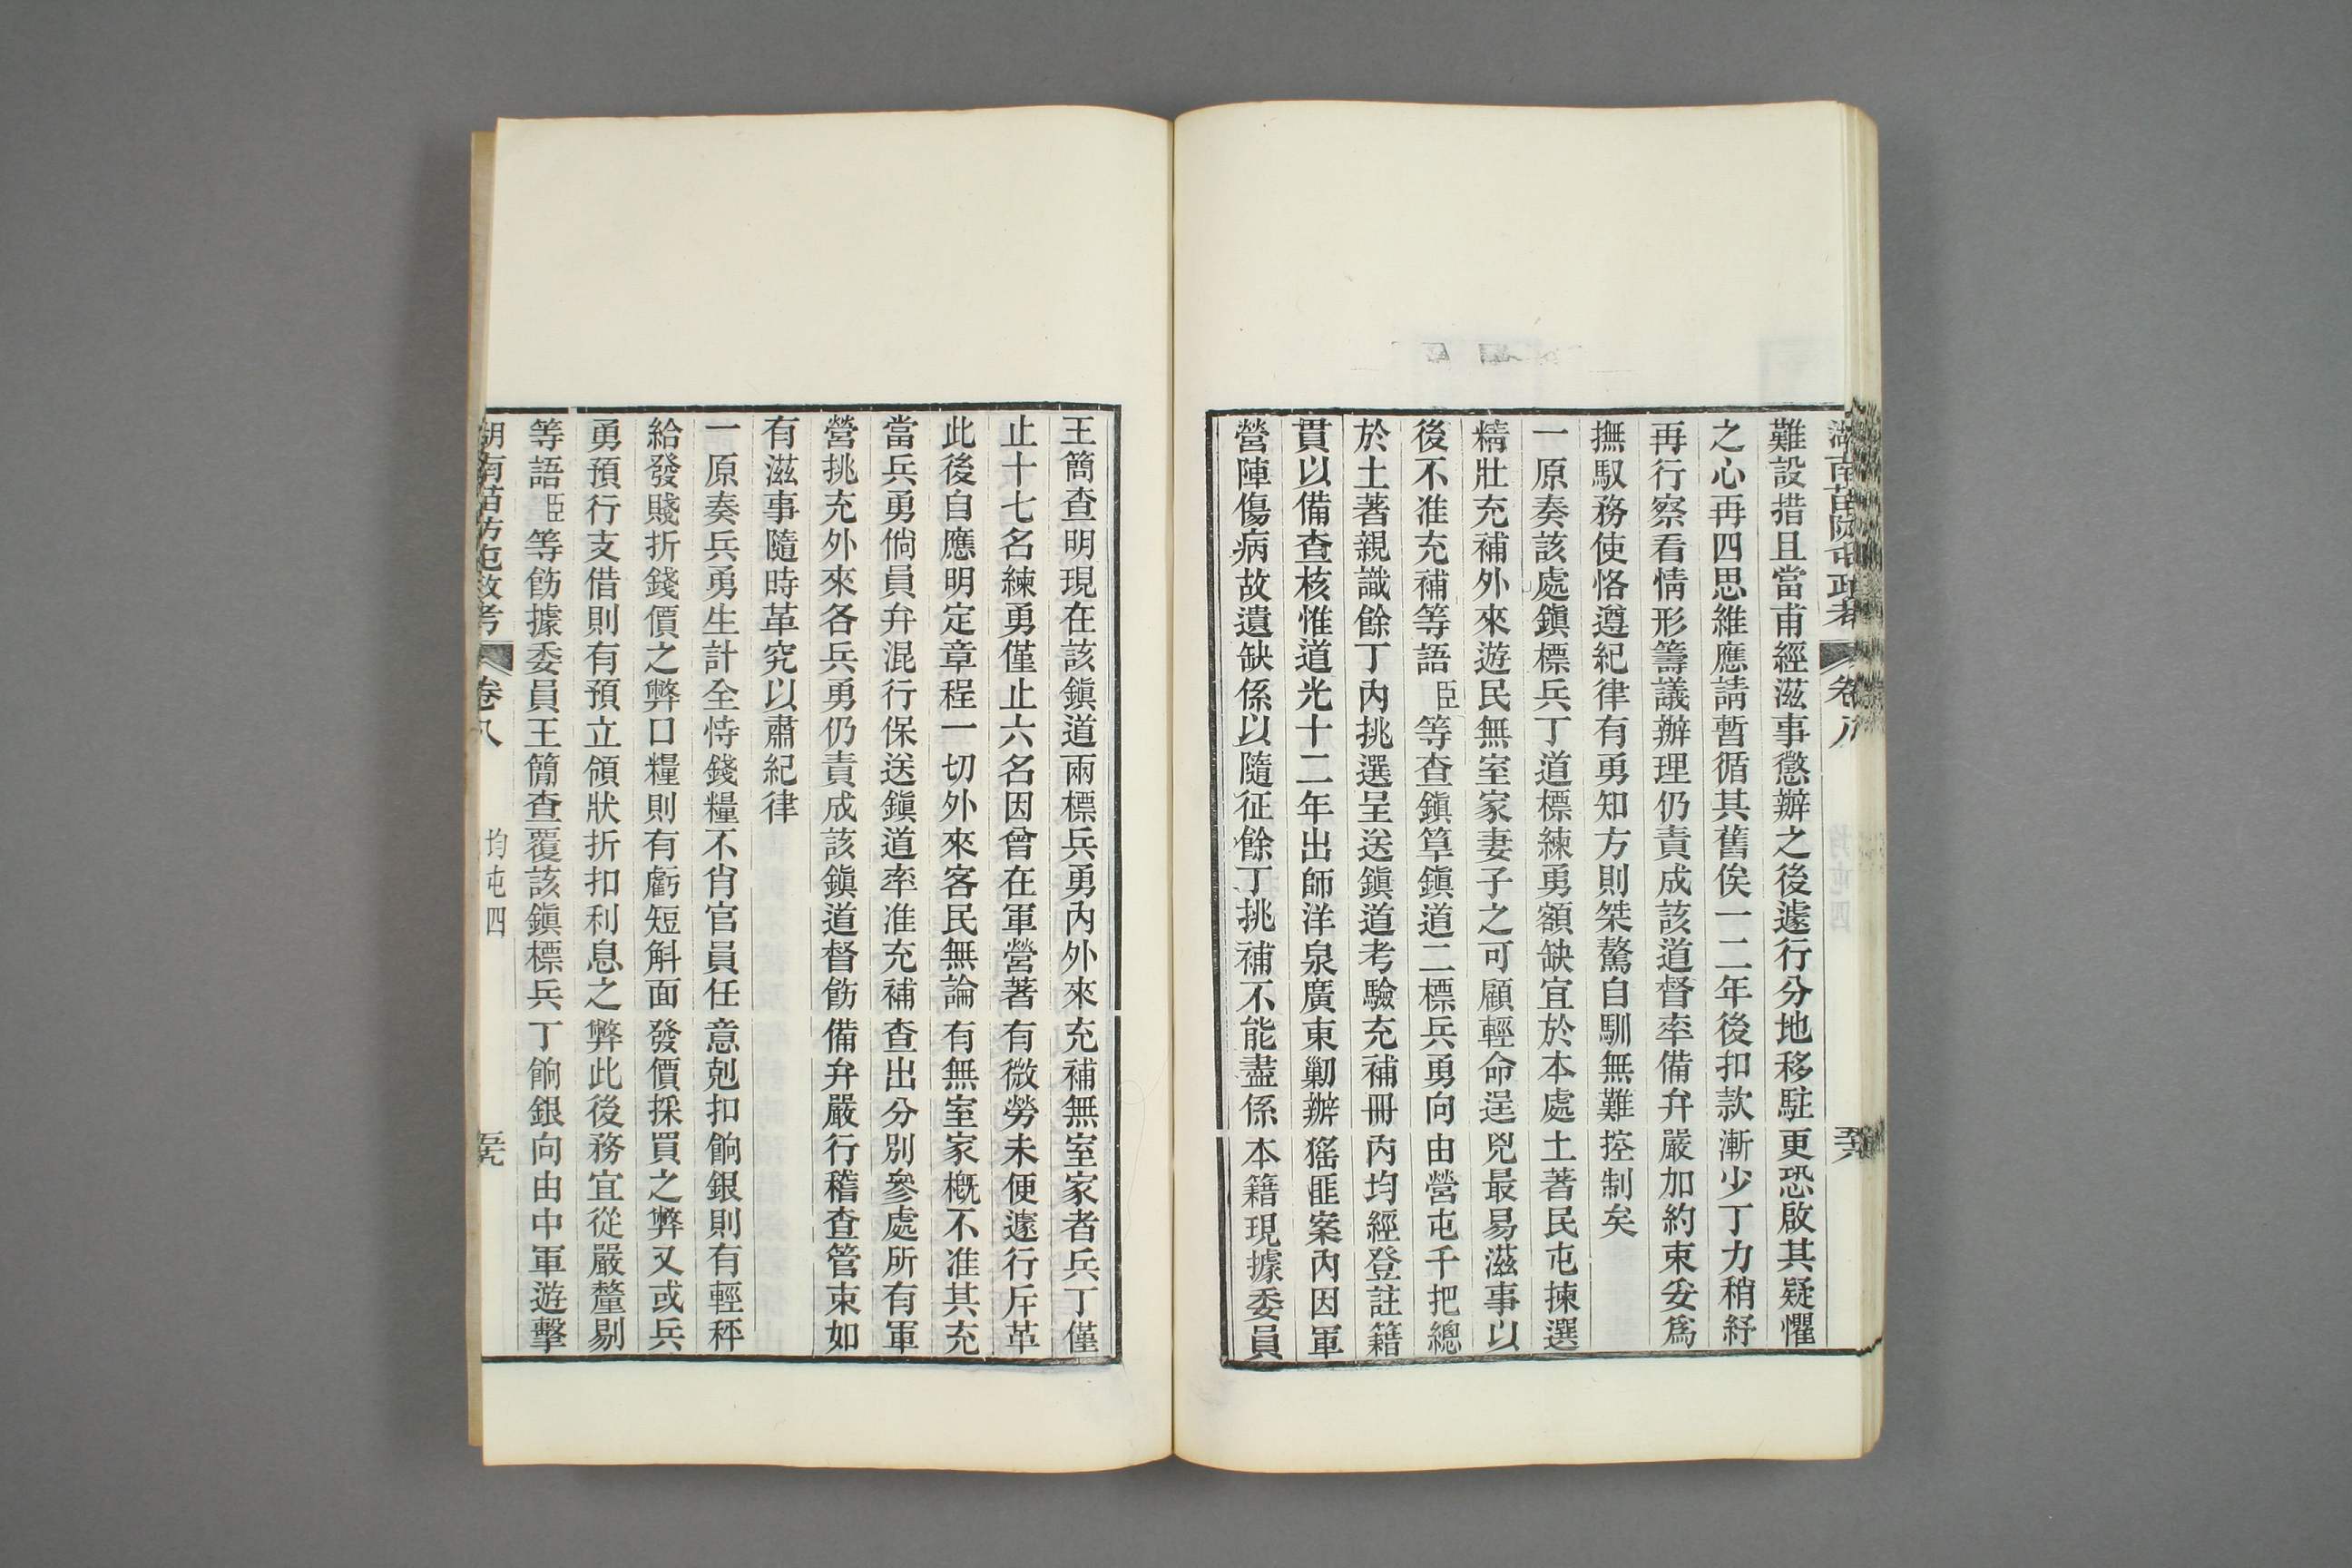 湖南苗防屯政考 卷八
難設措且當甫經滋事懲辦之後遽行分地移駐更恐啟其疑懼
之心再四思維應請暫循其舊俟一二年後扣款漸少丁力稍紓
再行察看情形籌議辦理仍責成該道督率備弁嚴加約束妥爲
撫馭務使恪遵紀律有勇知方則桀驁自馴無難控制矣
一原奏該處鎭標兵丁道標練勇額缺宜於本處土著民屯揀選
精壯充補外來遊民無室家妻子之可顧輕命逞兇最易滋事以
後不准充補等語臣等查鎭筸鎭道二標兵勇向由營屯千把總
於土著親識餘丁內挑選呈送鎭道考驗充補冊內均經登註籍
貫以備查核惟道光十二年出師洋泉廣東勦辦猺匪案內因軍
營陣傷病故遺缺係以隨征餘丁挑補不能盡係本籍現據委員
王簡查明現在該鎭道兩標兵勇內外來充補無室家者兵丁僅
止十七名練勇僅止六名因曾在軍營著有微勞未便遽行斥革
此後自應明定章程一切外來客民無論有無室家概不准其充
當兵勇倘員弁混行保送鎭道率准充補查出分別參處所有軍
營挑充外來各兵勇仍責成該鎭道督飭備弁嚴行稽查管束如
有滋事隨時革究以肅紀律
一原奏兵勇生計全恃錢糧不肖官員任意剋扣餉銀則有輕秤
給發賤折錢價之弊口糧則有虧短斛面發價採買之弊又或兵
勇預行支借則有預立領狀折扣利息之弊此後務宜從嚴釐剔
等語臣等飭據委員王簡查覆該鎭標兵丁餉銀向由中軍遊擊
湖南苗防屯政考 卷八 均屯四 五九